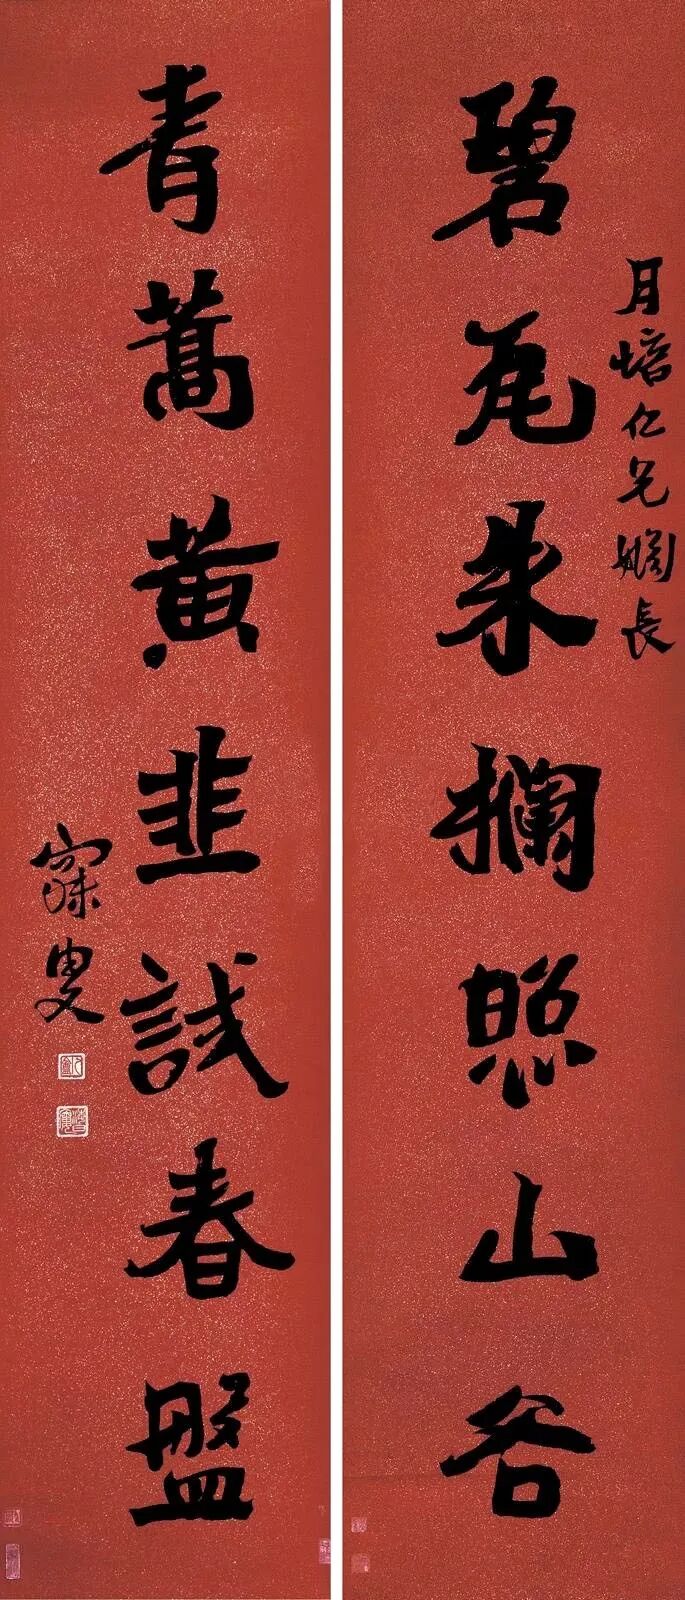 月培仁兄姻長
碧瓦朱欄照山谷
青蒿黃韭試春盤
寐叟